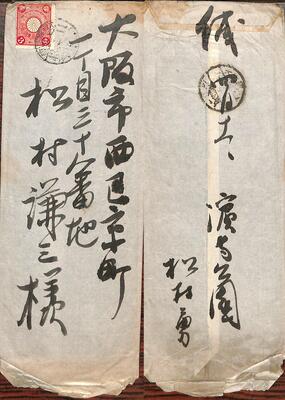 大阪市西区京町
一丁目三十八番地
松村謙三様
緘
濱寺公園
松村勇